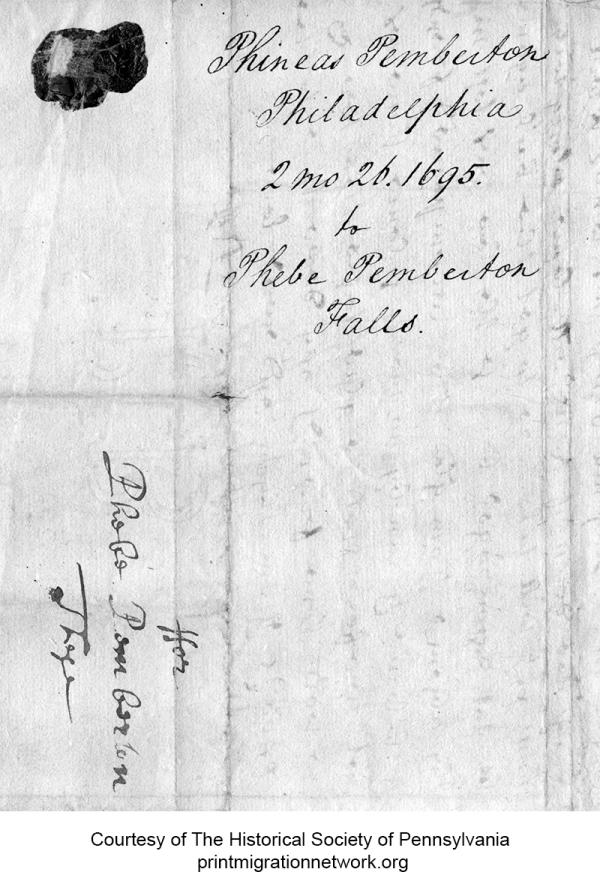 Phineas Pemberton
Philadelphia
2 mo 26. 1695.
to
Phebe Pemberton
Falls.
ffor
Phebe Pemberton
These
Courtesy of The Historical Society of Pennsylvania
printmigrationnetwork.org